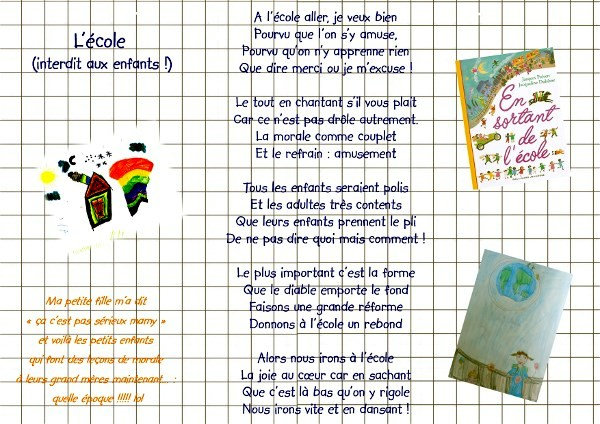 L'école
(interdit aux enfants !)
A l'école aller, je veux bien
Pourvu que l'on s'y amuse,
Pourvu qu'on n'y apprenne rien
Que dire merci ou je m'excuse !
Le tout en chantant s'il vous plait
Car ce n'est pas drôle autrement.
La morale comme couplet
Et le refrain : amusement
Tous les enfants seraient polis
Et les adultes très contents
Que leurs enfants prennent le pli
De ne pas dire quoi mais comment !
Le plus important c'est la forme
Que le diable emporte le fond
Faisons une grande réforme
Donnons à l'école un rebond
Alors nous irons à l'école
La joie au cœur car en sachant
Que c'est là bas qu'on y rigole
Nous irons vite et en dansant !
Ma petite fille m'a dit
« ça c'est pas sérieux mamy »
et voilà les petits enfants
qui font des leçons de morale
à leurs grand mères maintenant... :
quelle époque !!!!! lol
Jacques Prévert
Jacqueline Duhême
En
sortant
de
l'école